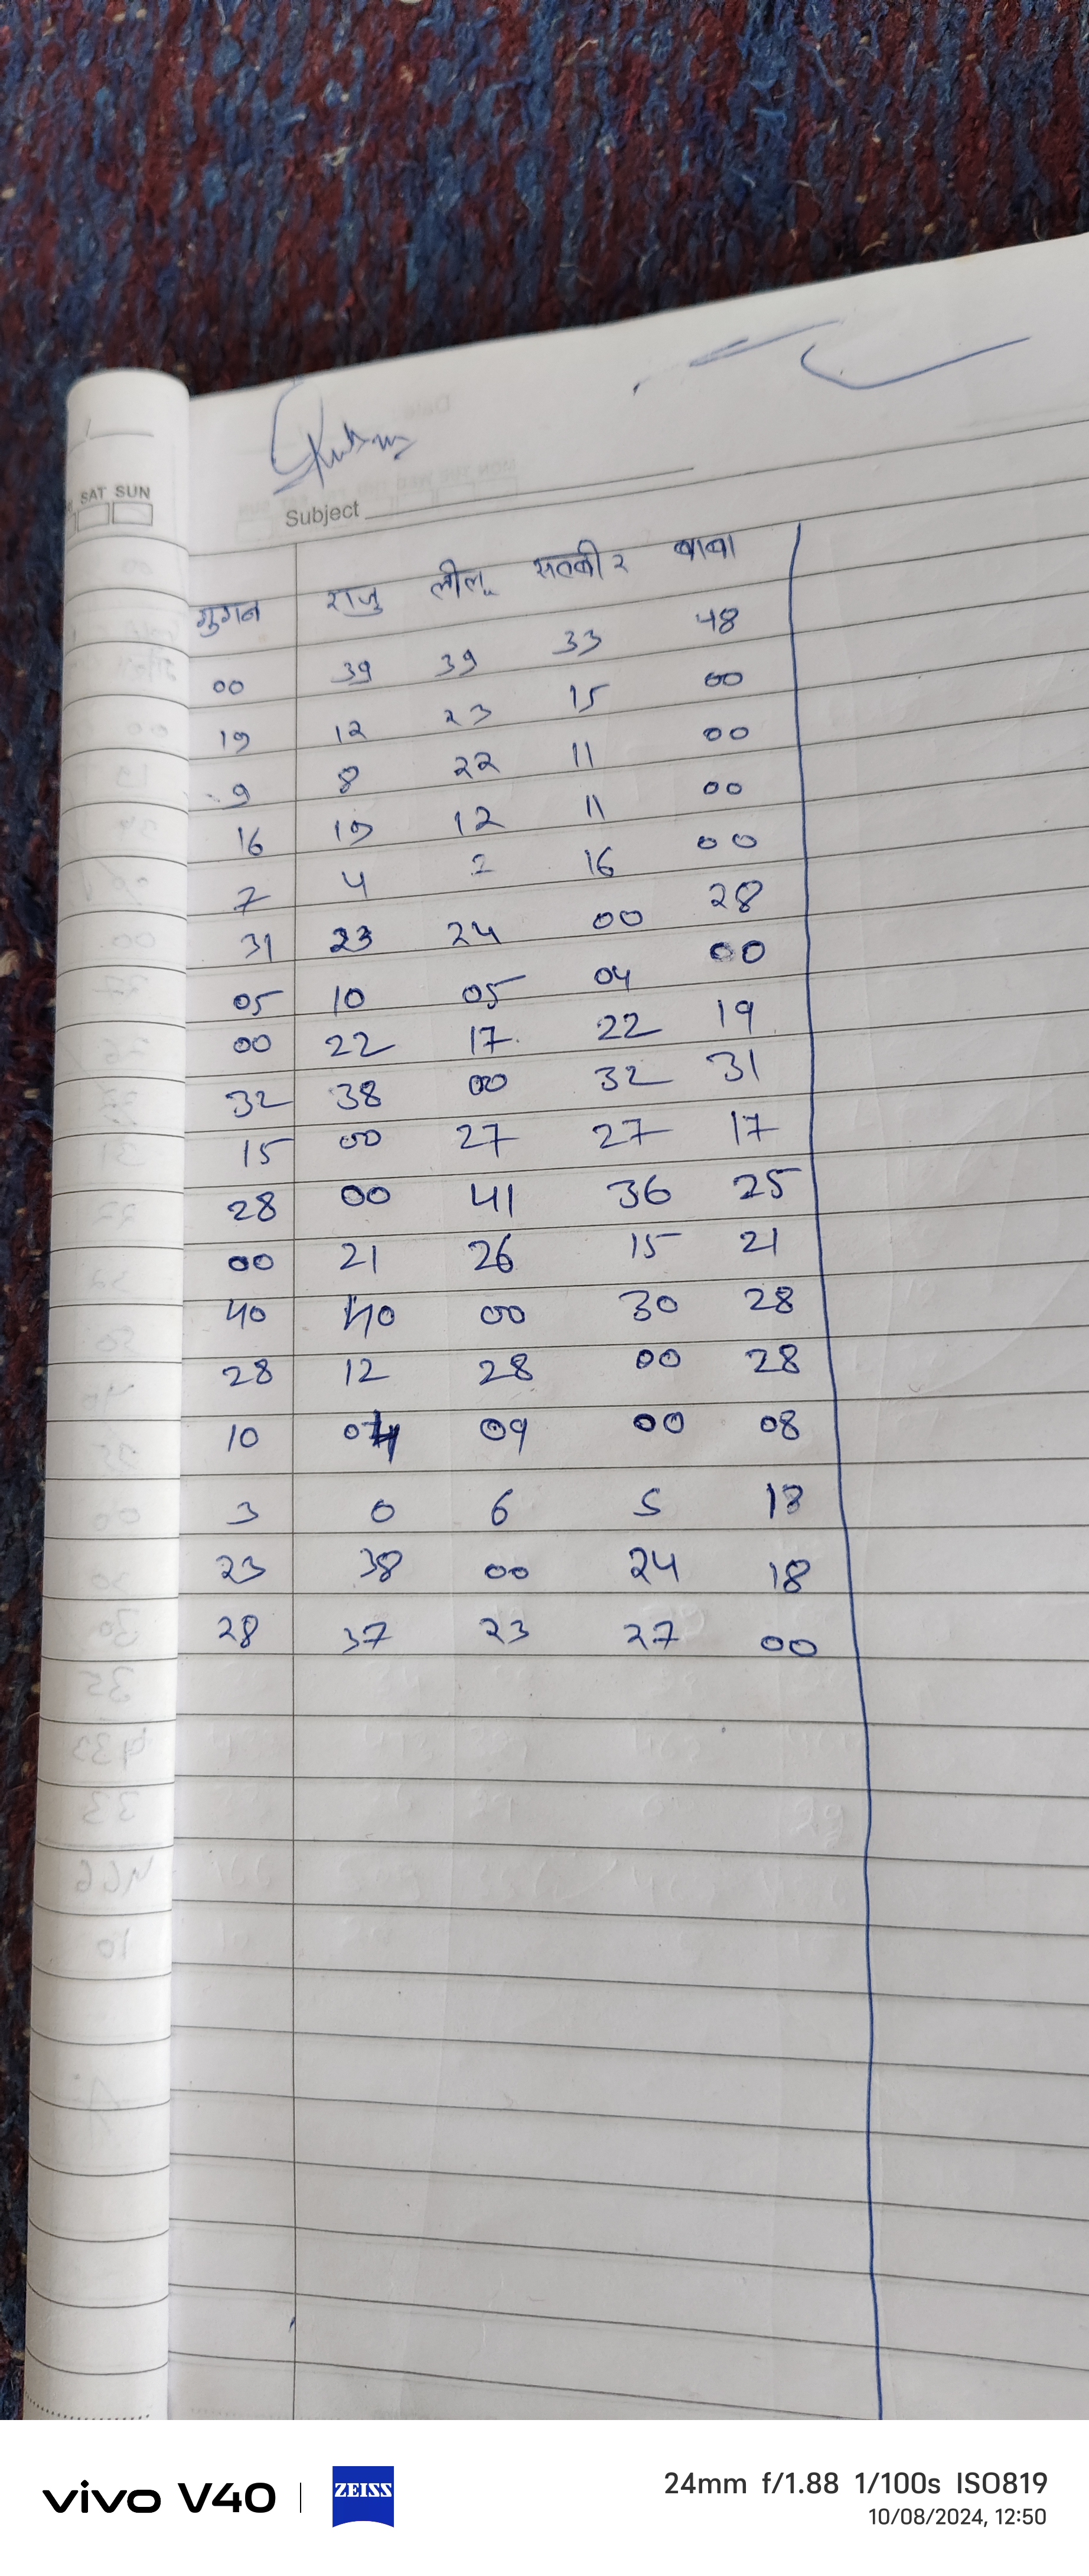 SAT SUN
Subject
गुगन राजु लीलू सतबीर बाबा
00 39 39 33 48
19 12 23 15 00
9 8 22 11 00
16 19 12 11 00
7 4 2 16 00
31 23 24 00 28
05 10 05 04 00
00 22 17 22 19
32 38 00 32 31
15 00 27 27 17
28 00 41 36 25
00 21 26 15 21
40 40 00 30 28
28 12 28 00 28
10 04 09 00 08
3 0 6 5 13
23 38 00 24 18
28 37 23 27 00
vivo V40 | ZEISS
24mm f/1.88 1/100s ISO819
10/08/2024, 12:50